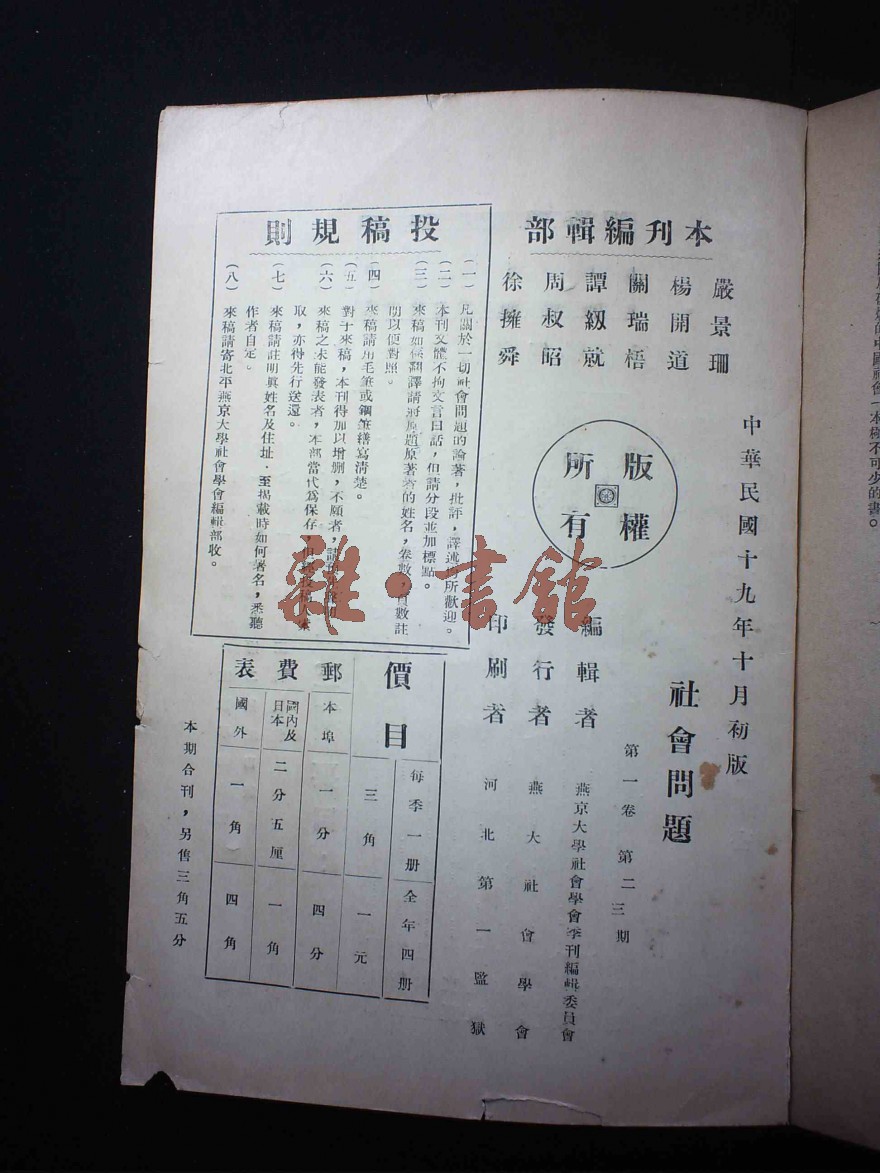 本刊編輯部
嚴景珊
楊開道
關瑞梧
譚紉就
周叔昭
徐擁舜
版權
所有
中華民國十九年十月初版
社會問題
第一卷第二三期
編輯者 燕京大學社會學會季刊編輯委員會
發行者 燕大社會學會
印刷者 河北第一監獄
投稿規則
(一) 凡關於一切社會問題的論著，批評，譯述均所歡迎。
(二) 本刊文體不拘文言白話，但請分段並加標點。
(三) 來稿如係翻譯請將原題原著者的姓名，卷數，頁數註
明以便對照。
(四) 來稿請用毛筆或鋼筆繕寫清楚。
(五) 對于來稿，本刊得加以增删，不願者，請
(六) 來稿之未能發表者，本部當代爲保存，
取，亦得先行送還。
(七) 來稿請註明眞姓名及住址．至揭載時如何署名，悉聽
作者自定。
(八) 來稿請寄北平燕京大學社會學會編輯部收。
價目 每季一册 全年四册
三角 一元
郵費表
本埠 一分 四分
國內及日本 二分五厘 一角
國外 一角 四角
本期合刊，另售三角五分
雜·書館
中國社會一本極不可少的書。